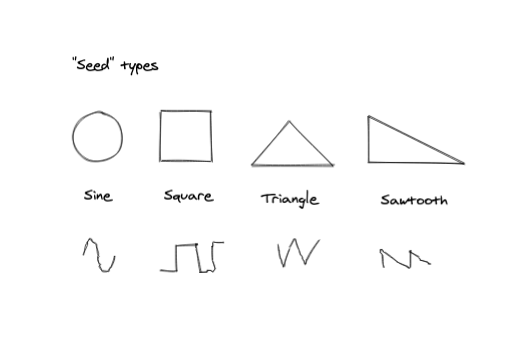 "Seed" types
Sine Square Triangle Sawtooth